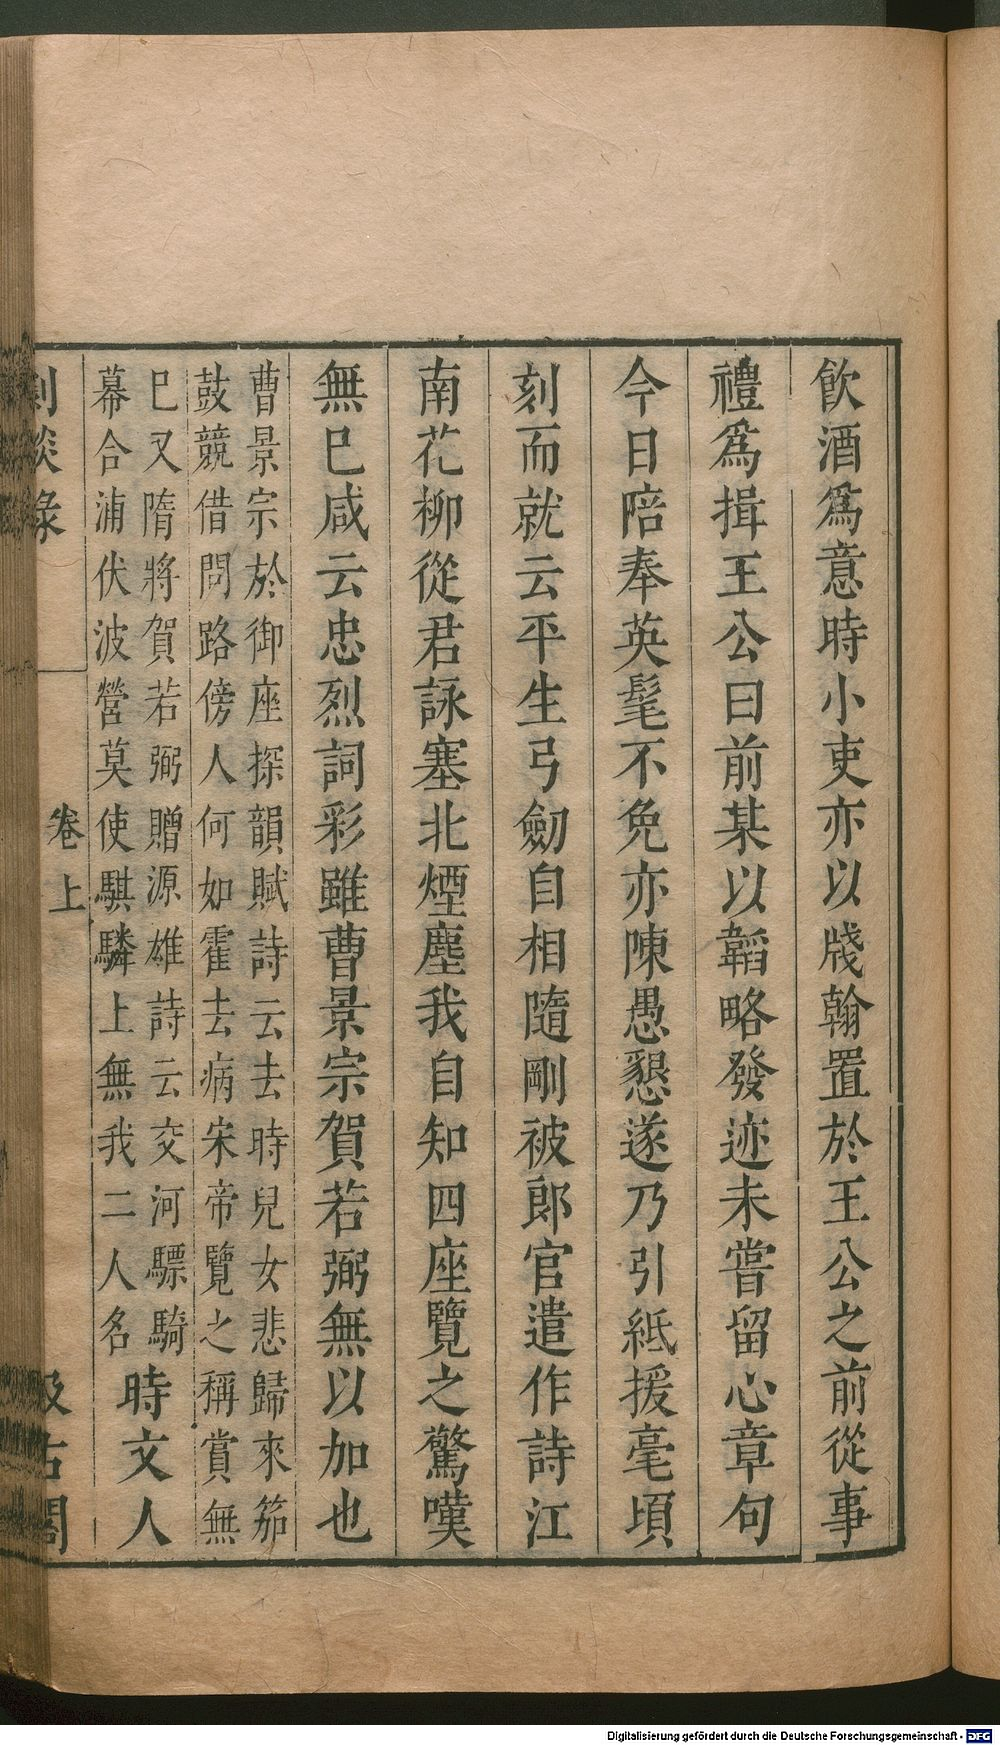 飲酒爲意時小吏亦以牋翰置於王公之前從事
禮爲揖王公曰前某以韜略發迹未嘗留心章句
今日陪奉英髦不免亦陳愚懇遂乃引紙援毫頃
刻而就云平生弓劒自相隨剛被郎官遣作詩江
南花柳從君詠塞北煙塵我自知四座覽之驚嘆
無巳咸云忠烈詞彩雖曹景宗賀若弼無以加也
曹景宗於御座探韻賦詩云去時兒女悲歸來笳
鼓競借問路傍人何如霍去病宋帝覽之稱賞無
巳又隋將賀若弼贈源雄詩云交河驃騎
幕合浦伏波營莫使騏驎上無我二人名
時文人
劇談錄
卷上
汲古閣
Digitalisierung gefördert durch die Deutsche Forschungsgemeinschaft - DFG